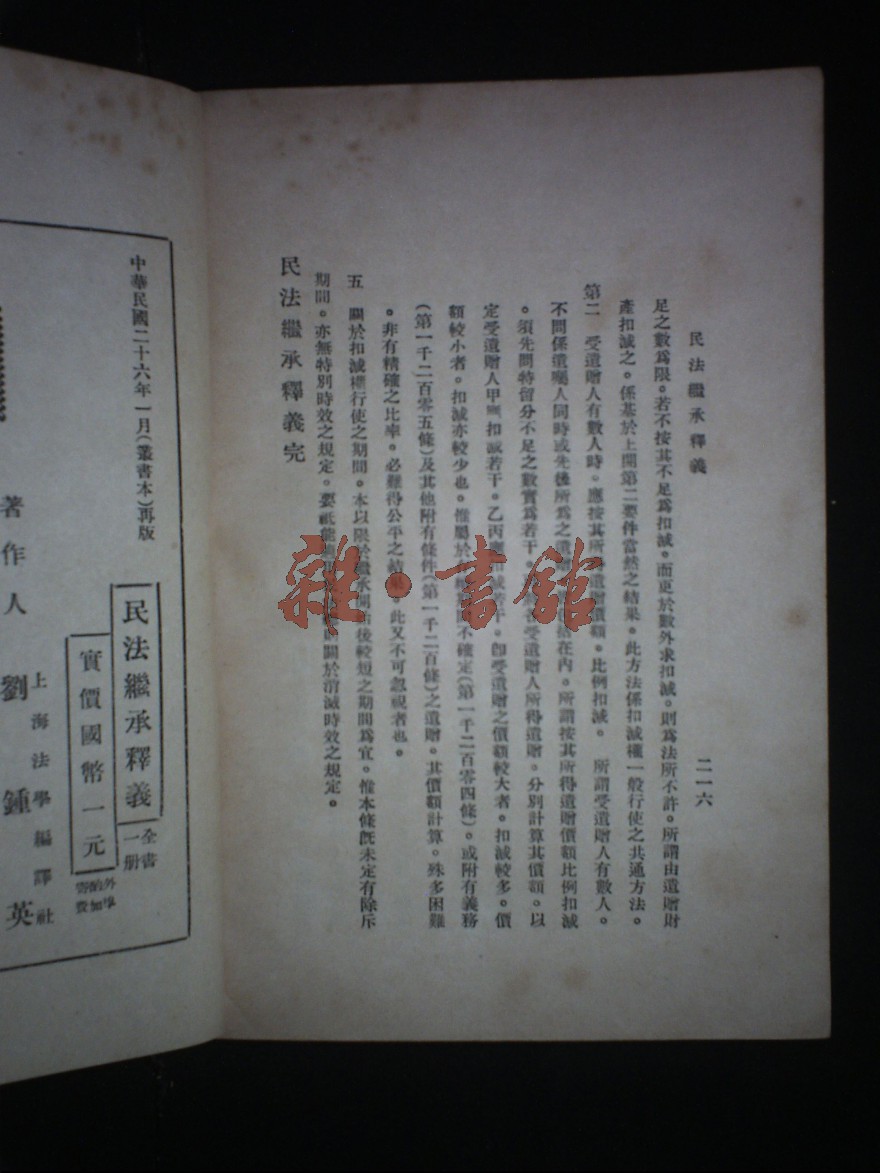 民法繼承釋義
二一六
足之數爲限。若不按其不足爲扣減。而更於數外求扣減。則爲法所不許。所謂由遺贈財
產扣減之。係基於上開第二要件當然之結果。此方法係扣減權一般行使之共通方法。
第二 受遺贈人有數人時。應按其所得遺贈價額。比例扣減。 所謂受遺贈人有數人。
不問係遺囑人同時或先後所爲之遺贈 括在內。所謂按其所得遺贈價額比例扣減
。須先問特留分不足之數實爲若干。 受遺贈人所得遺贈。分別計算其價額。以
定受遺贈人甲應扣減若干。乙丙應扣減若干。卽受遺贈之價額較大者。扣減較多。價
額較小者。扣減亦較少也。惟屬於 不確定(第一千二百零四條)。或附有義務
(第一千二百零五條)及其他附有條件(第一千二百條)之遺贈。其價額計算。殊多困難
。非有精確之比率。必難得公平之結果。此又不可忽視者也。
五 關於扣減權行使之期間。本以限於繼承開始後較短之期間爲宜。惟本條旣未定有除斥
期間。亦無特別時效之規定。要祇能 關於消滅時效之規定。
民法繼承釋義完
中華民國二十六年一月(叢書本)再版
民法繼承釋義
全書一册
實價國幣一元
外埠酌加寄費
著作人 劉鍾英
上海法學編譯社
雜·書館